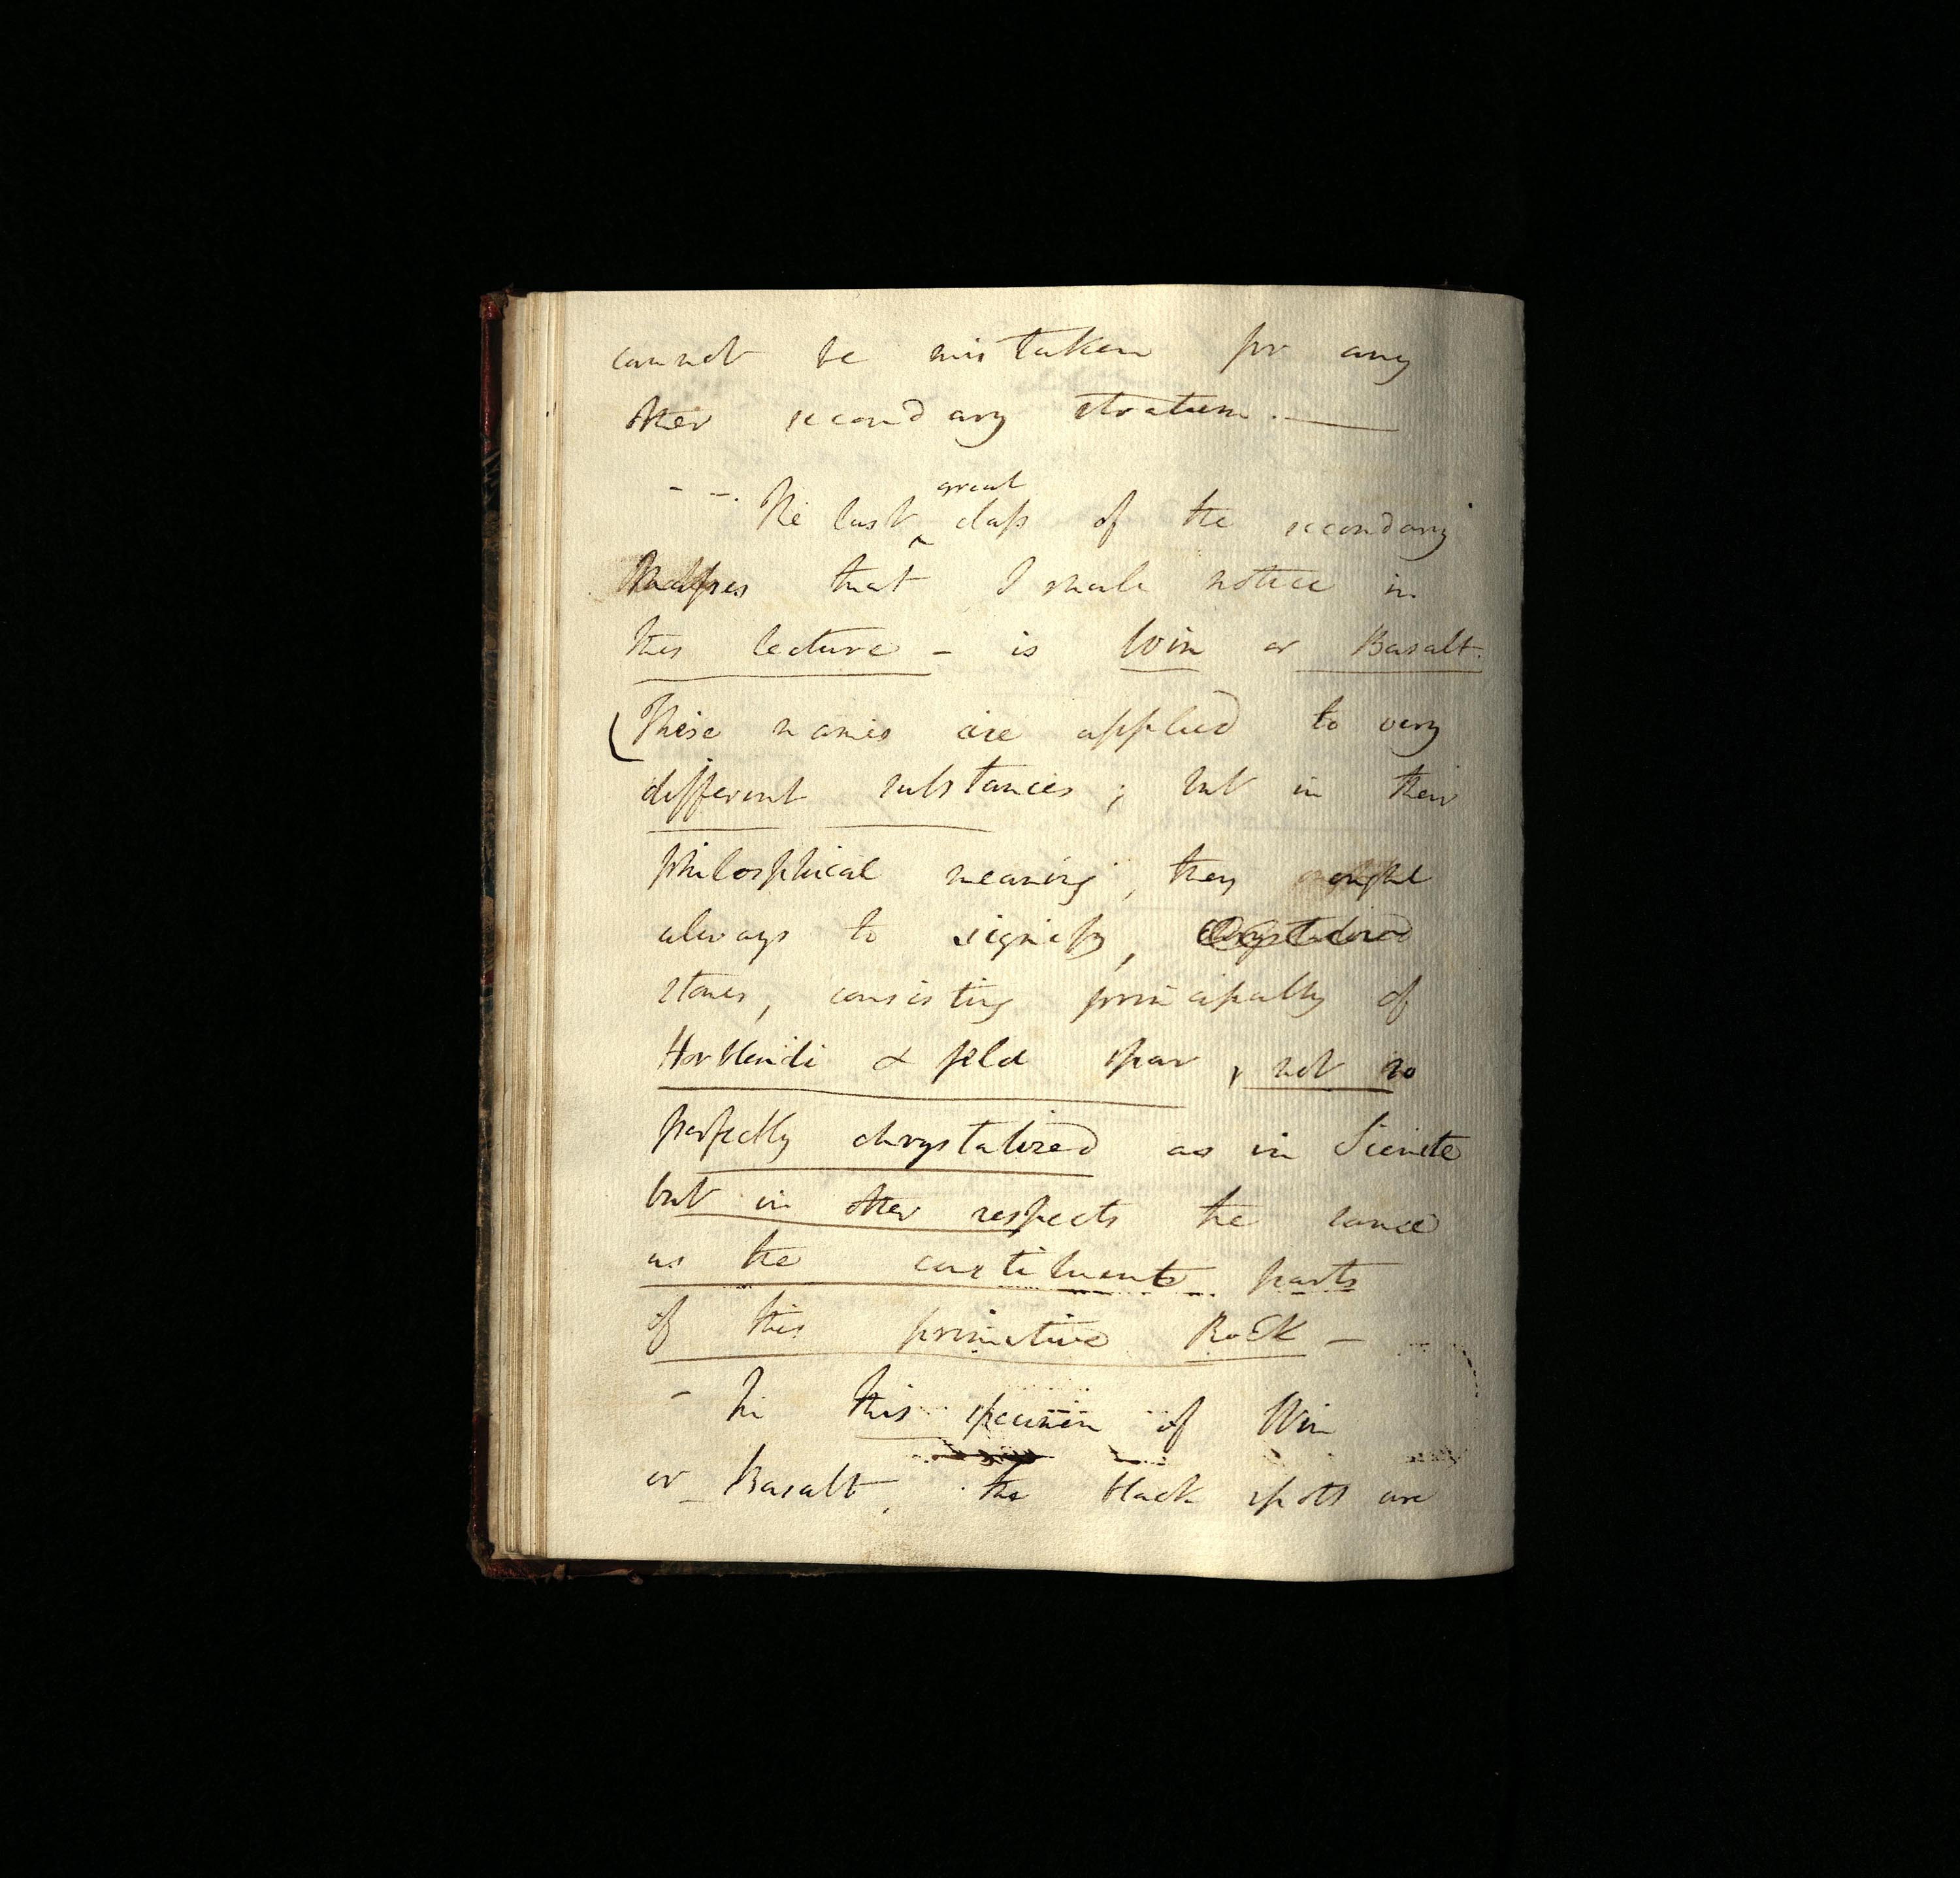 cannot be mistaken for any
other secondary stratum. —
- -. The last great class of the secondary
Masses that I shall notice in
this lecture - is Win or Basalt.
(These names are applied to very
different substances; but in their
philosophical meaning, they ought
always to signify, chrystalized
stones, consisting principally of
Hornblende & feld spar, not so
perfectly chrystalized as in Sienite
but in other respects the same
as the constituent parts
of this primitive Rock -
- In this specimen of Win
or Basalt, the black spots are